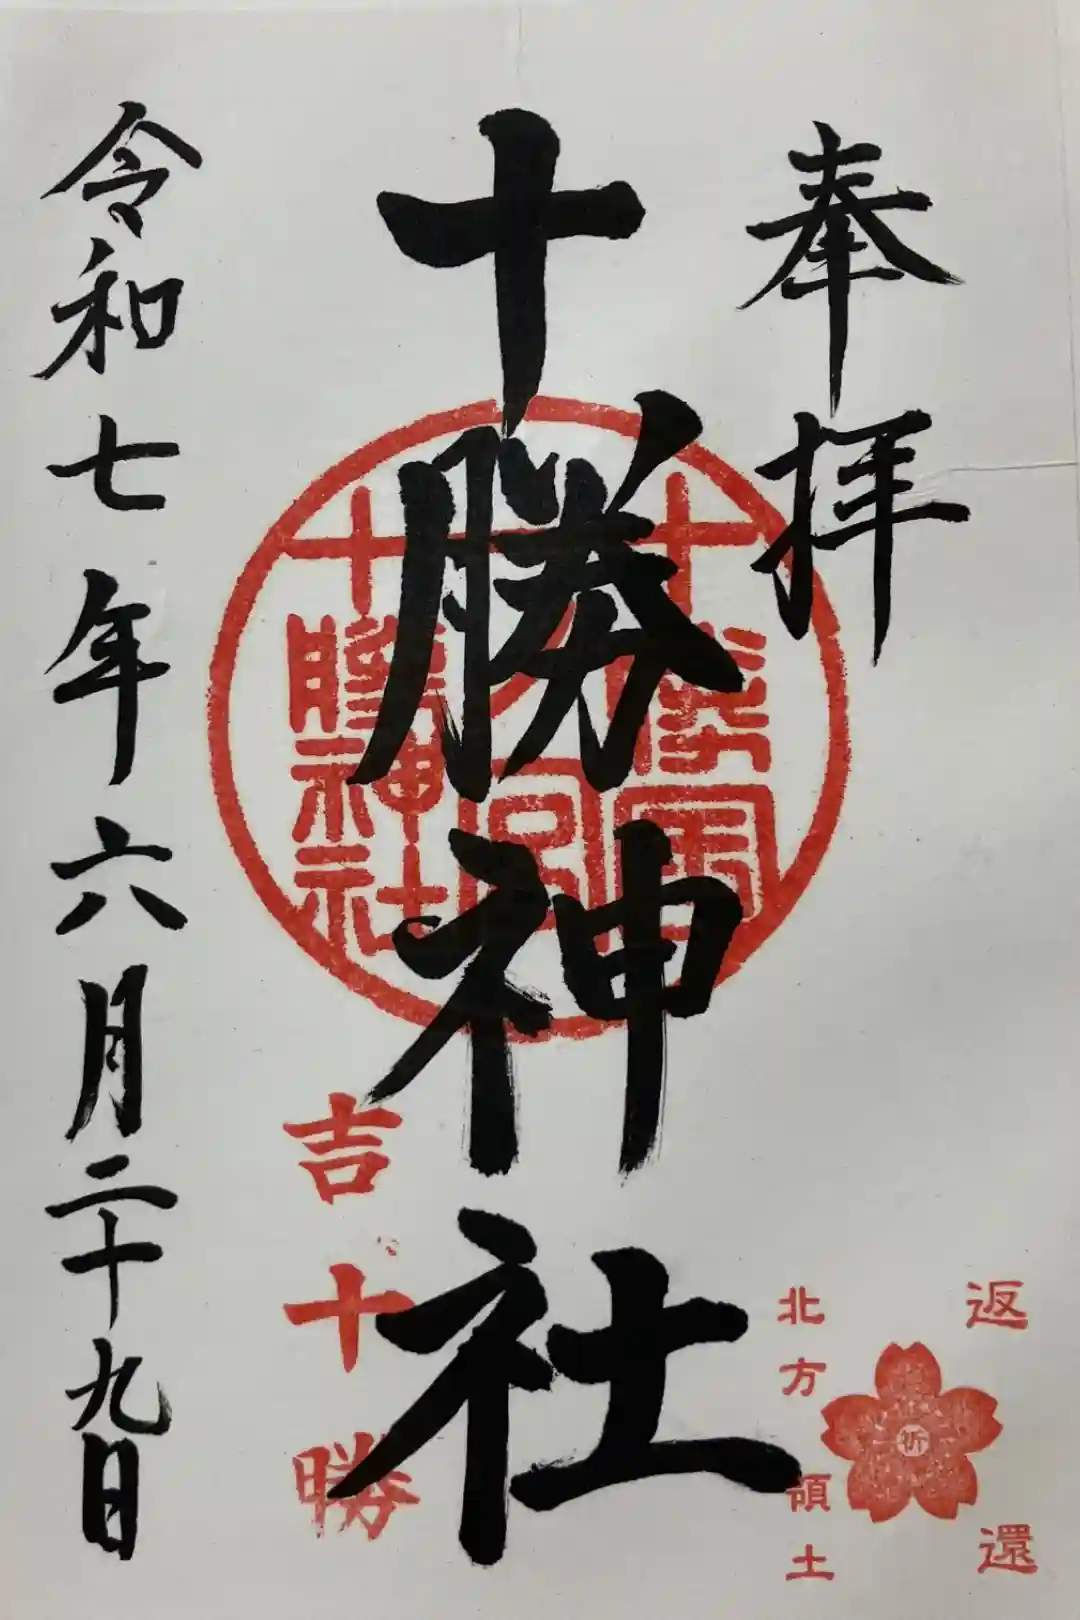 奉拝
十勝神社
令和七年六月二十九日
十勝
十勝神社
吉十勝
返還
祈
北方領土